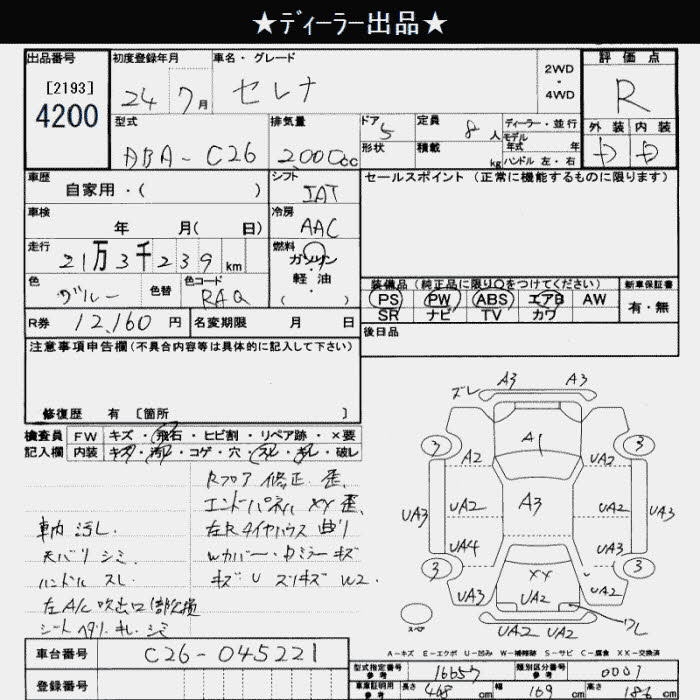 ★ディーラー出品★
出品番号
[2193]
4200
初度登録年月
24年7月
車名・グレード
セレナ
2WD
・
4WD
評価点
R
外装 内装
D D
型式
ABA-C26
排気量
2000cc
ドア 5
形状
定員 8人
積載 kg
ディーラー・並行
モデル年式 年
ハンドル 左・右
車歴
自家用・( )
シフト
IAT
セールスポイント (正常に機能するものに限ります)
車検
年 月( 日)
冷房
AAC
走行
21万3千239km
燃料
ガソリン
軽油
( ・ )
色
ブルー
色替
色コード
RAQ
装備品 (純正品に限り○をつけてください)
新車保証書
PS PW ABS エアB AW
SR ナビ TV カワ
有・無
R券 12,160 円
名変期限 月 日
後日品
注意事項申告欄(不具合内容等は具体的に記入して下さい)
修復歴 有 [箇所 ]
検査員 FW キズ・飛石・ヒビ割・リペア跡・×要
記入欄 内装 キズ・汚レ・コゲ・穴・スレ・キレ・破レ
Rフロア 修正、歪、
エンドパネル XY 歪、
車内 汚し.
左Rタイヤハウス 曲り
天バリ シミ.
Wカバー・ドミラー キズ
ハンドル スレ.
キズ U スリキズ W2.
左A/C吹出口部欠損
シート ヘタリ・キレ・シミ
ズレ A3 A3
3 A1 3
A2 UA2
UA3 UA2 A3 UA2 UA3
UA4 UA3
3 XY 3
UA3 UA2 UA2
ワレ
スペア
UA2 UA2
A-キズ E-エクボ U-凹み W-補修跡 S-サビ C-腐食 XX-交換済
車台番号 C26-045221
登録番号
型式指定番号 参考 16657
類別区分番号 参考 0007
車庫証明用 参考 長さ 468 cm 幅 169 cm 高さ 186 cm